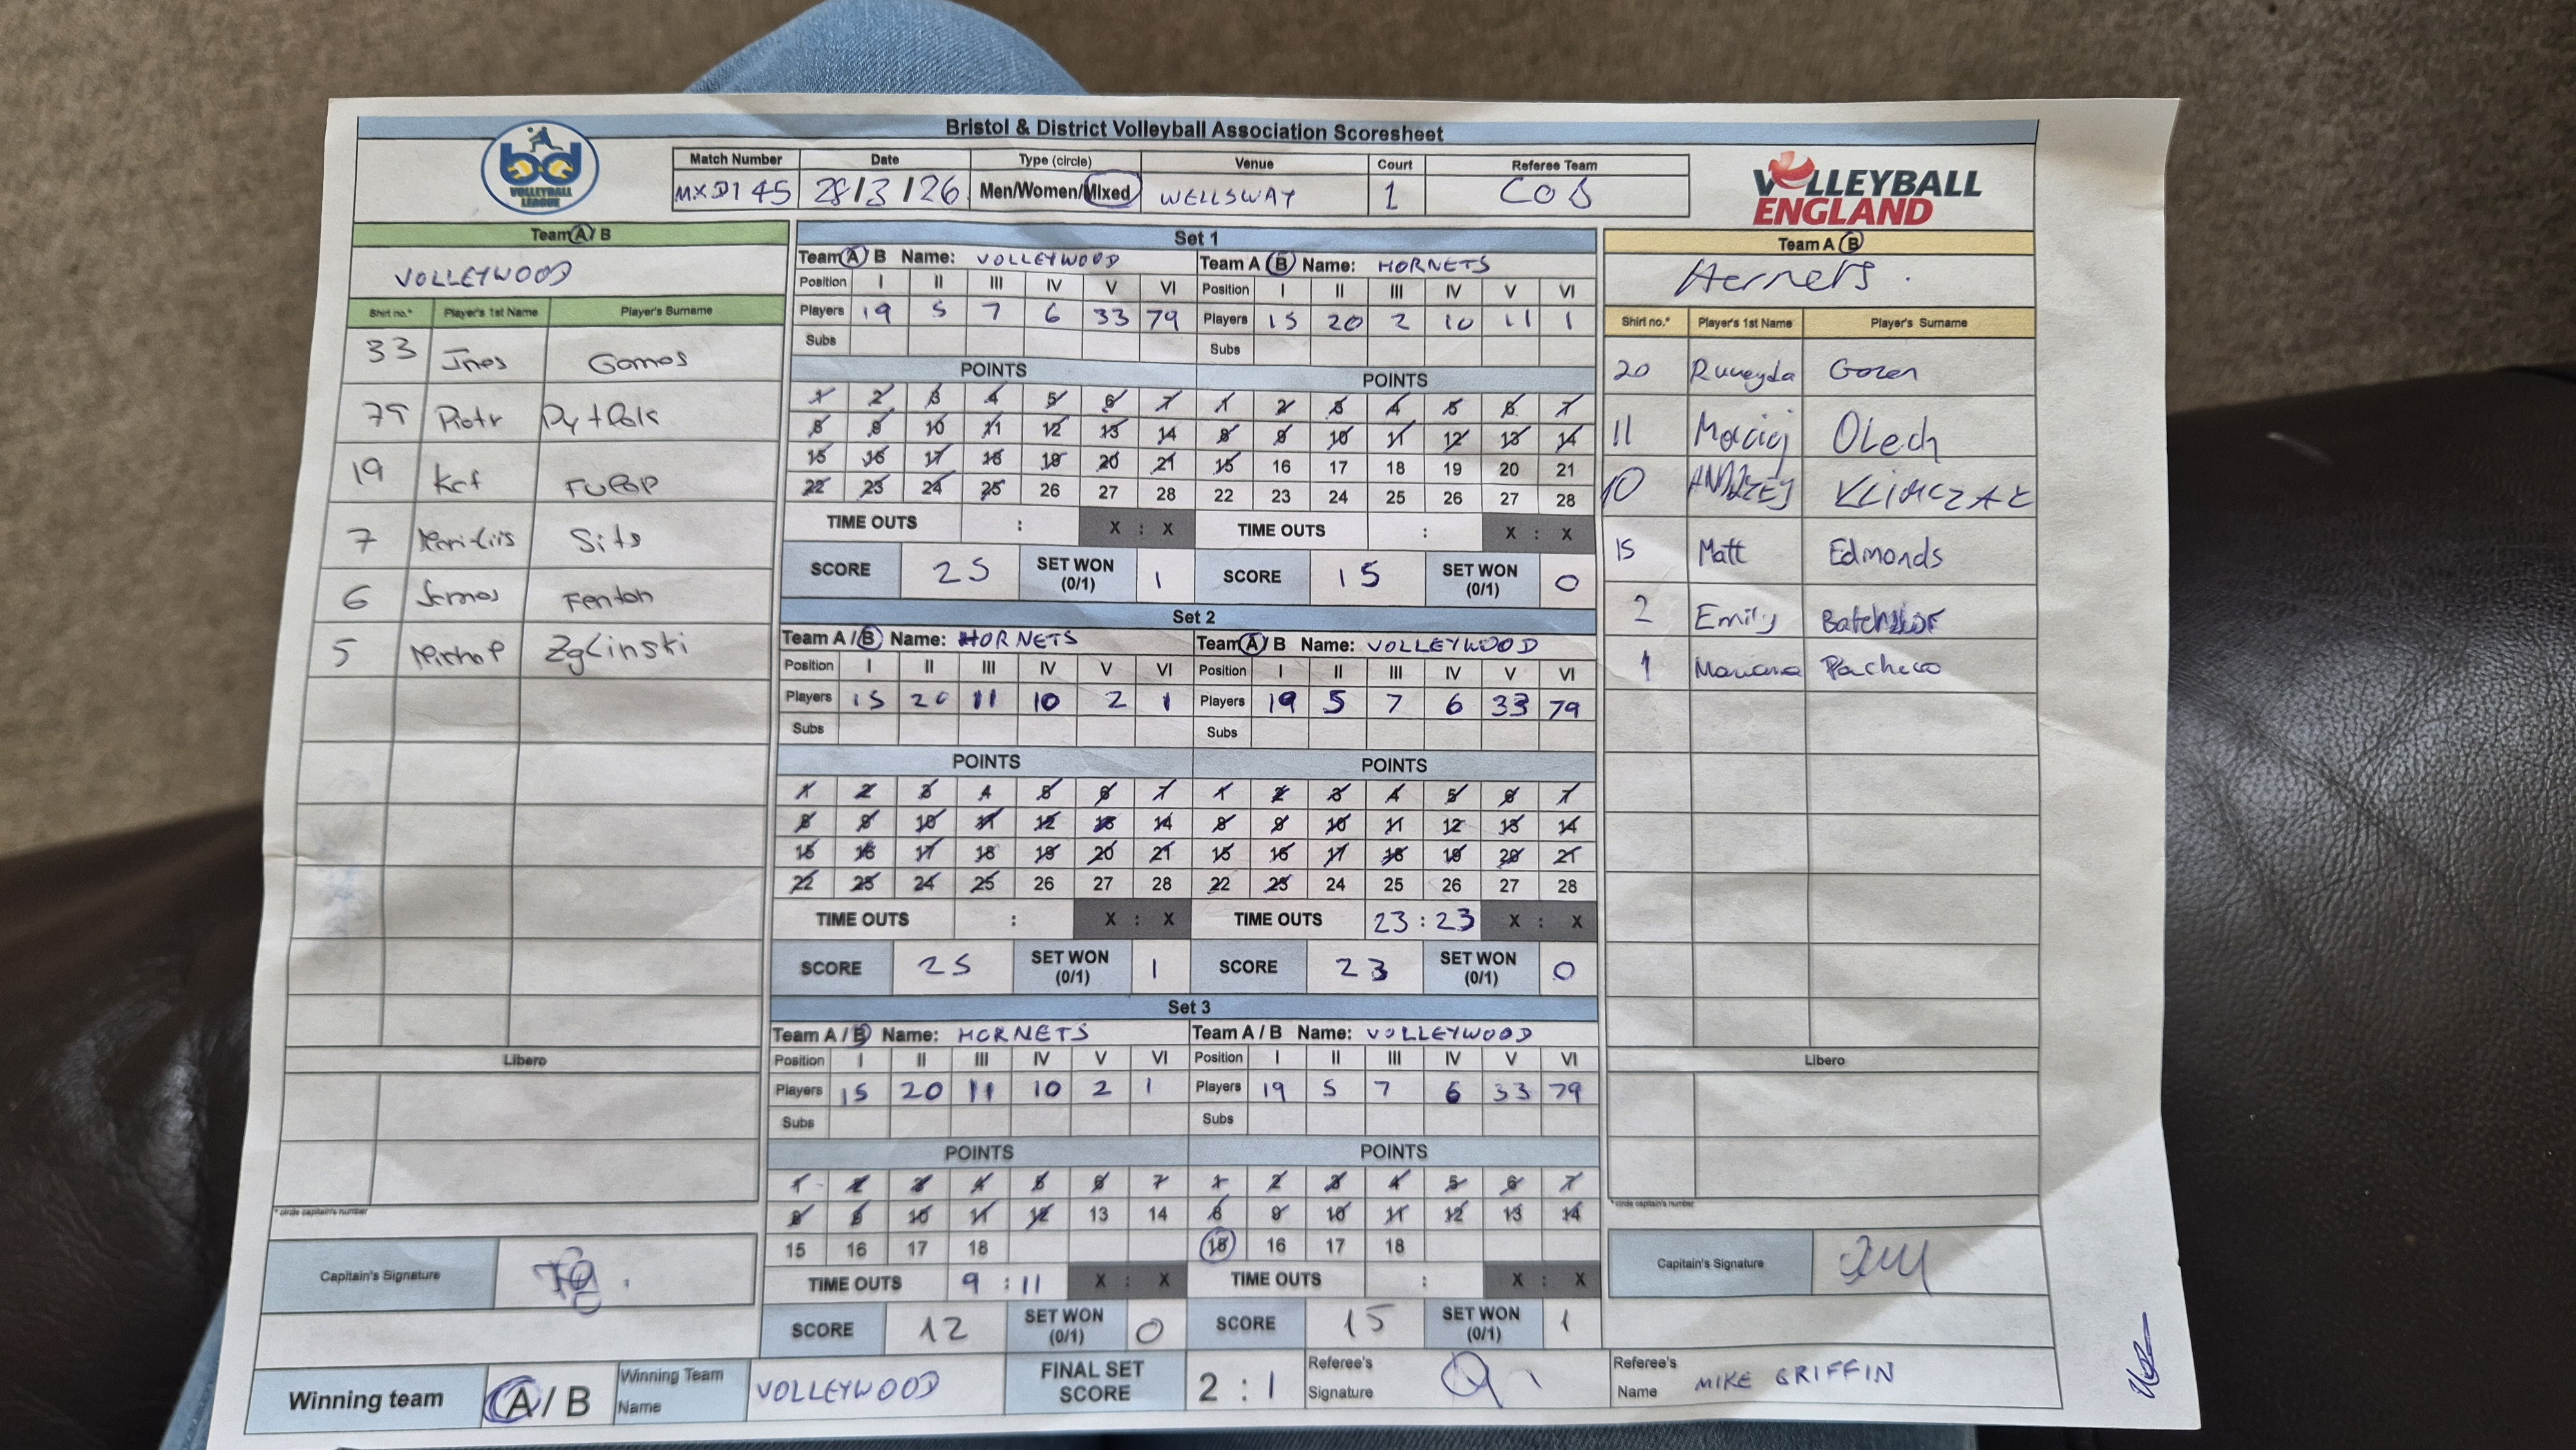 Bristol & District Volleyball Association Scoresheet
bd VOLLEYBALL LEAGUE
Match Number Date Type (circle) Venue Court Referee Team
MXD1 45 28/3/26 Men/Women/Mixed WELLSWAY 1 COB
VOLLEYBALL ENGLAND
Team A / B
VOLLEYWOOD
Shirt no.* Player's 1st Name Player's Surname
33 Ines Gomes
79 Piotr
19 Kat
7 Sits
6 James Fenton
5 Zglinski
Libero
* circle captain's number
Capitain's Signature
Set 1
Team A / B Name: VOLLEYWOOD Team A / B Name: HORNETS
Position I II III IV V VI Position I II III IV V VI
Players 19 5 7 6 33 79 Players 15 20 2 10 11 1
Subs Subs
POINTS POINTS
1 2 3 4 5 6 7 1 2 3 4 5 6 7
8 9 10 11 12 13 14 8 9 10 11 12 13 14
15 16 17 18 19 20 21 15 16 17 18 19 20 21
22 23 24 25 26 27 28 22 23 24 25 26 27 28
TIME OUTS : X : X TIME OUTS : X : X
SCORE 25 SET WON (0/1) 1 SCORE 15 SET WON (0/1) 0
Set 2
Team A / B Name: HORNETS Team A / B Name: VOLLEYWOOD
Position I II III IV V VI Position I II III IV V VI
Players 15 20 11 10 2 1 Players 19 5 7 6 33 79
Subs Subs
POINTS POINTS
1 2 3 4 5 6 7 1 2 3 4 5 6 7
8 9 10 11 12 13 14 8 9 10 11 12 13 14
15 16 17 18 19 20 21 15 16 17 18 19 20 21
22 23 24 25 26 27 28 22 23 24 25 26 27 28
TIME OUTS : X : X TIME OUTS 23 : 23 X : X
SCORE 25 SET WON (0/1) 1 SCORE 23 SET WON (0/1) 0
Set 3
Team A / B Name: HORNETS Team A / B Name: VOLLEYWOOD
Position I II III IV V VI Position I II III IV V VI
Players 15 20 11 10 2 1 Players 19 5 7 6 33 79
Subs Subs
POINTS POINTS
1 2 3 4 5 6 7 1 2 3 4 5 6 7
8 9 10 11 12 13 14 8 9 10 11 12 13 14
15 16 17 18 15 16 17 18
TIME OUTS 9 : 11 X : X TIME OUTS : X : X
SCORE 12 SET WON (0/1) 0 SCORE 15 SET WON (0/1) 1
Team A / B
Hornets.
Shirt no.* Player's 1st Name Player's Surname
20 Rumeyda Gozen
11 Maciej Olech
10 ANDRZEJ KLIMCZAK
15 Matt Edmonds
2 Emily Batchelor
1 Mariana Pacheco
Libero
* circle captain's number
Capitain's Signature
Winning team A / B Winning Team Name VOLLEYWOOD FINAL SET SCORE 2 : 1 Referee's Signature Referee's Name MIKE GRIFFIN